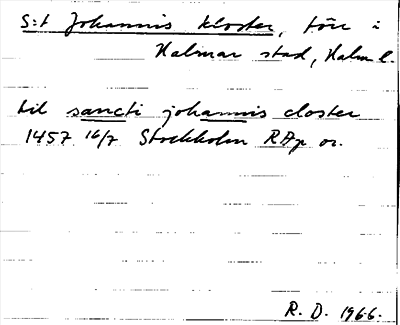 S:t Johannis kloster, förr i
Kalmar stad, Kalm l.
til sancti johannis closter
1457 16/7 Stockholm RAp or.
R. D. 1966.